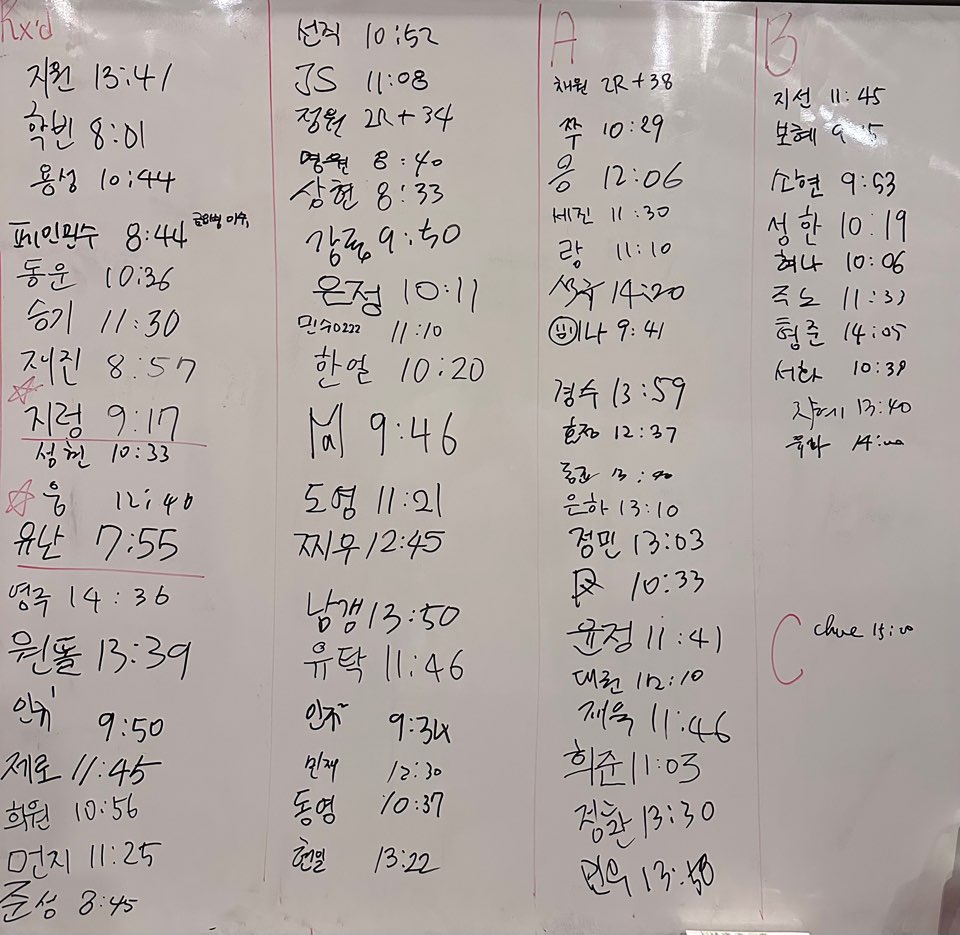 Rx'd
지원 13:41
학빈 8:01
용성 10:44
페인민수 8:44
동운 10:36
승기 11:30
재진 8:57
지령 9:17
성현 10:33
웅 12:40
유난 7:55
영주 14:36
원돌 13:39
인귀 9:50
제로 11:45
희원 10:56
먼지 11:25
준성 8:45
선직 10:52
JS 11:08
정원 2R+34
명원 8:40
상현 8:33
9:50
은정 10:11
민수0222 11:10
한얼 10:20
9:46
도영 11:21
찌우 12:45
남갱 13:50
유탁 11:46
9:34
민재 12:30
동영 10:37
현일 13:22
A
채원 2R+38
쭈 10:29
응 12:06
세진 11:30
랑 11:10
14:20
나 9:41
경수 13:59
효정 12:37
은하 13:10
정민 13:03
10:33
윤정 11:41
대원 12:10
재욱 11:46
희준 11:03
정환 13:30
민우 13:58
B
지선 11:45
보혜
소현 9:53
성한 10:19
혀나 10:06
죽노 11:33
형준 14:05
서화 10:38
쟈에 13:40
C